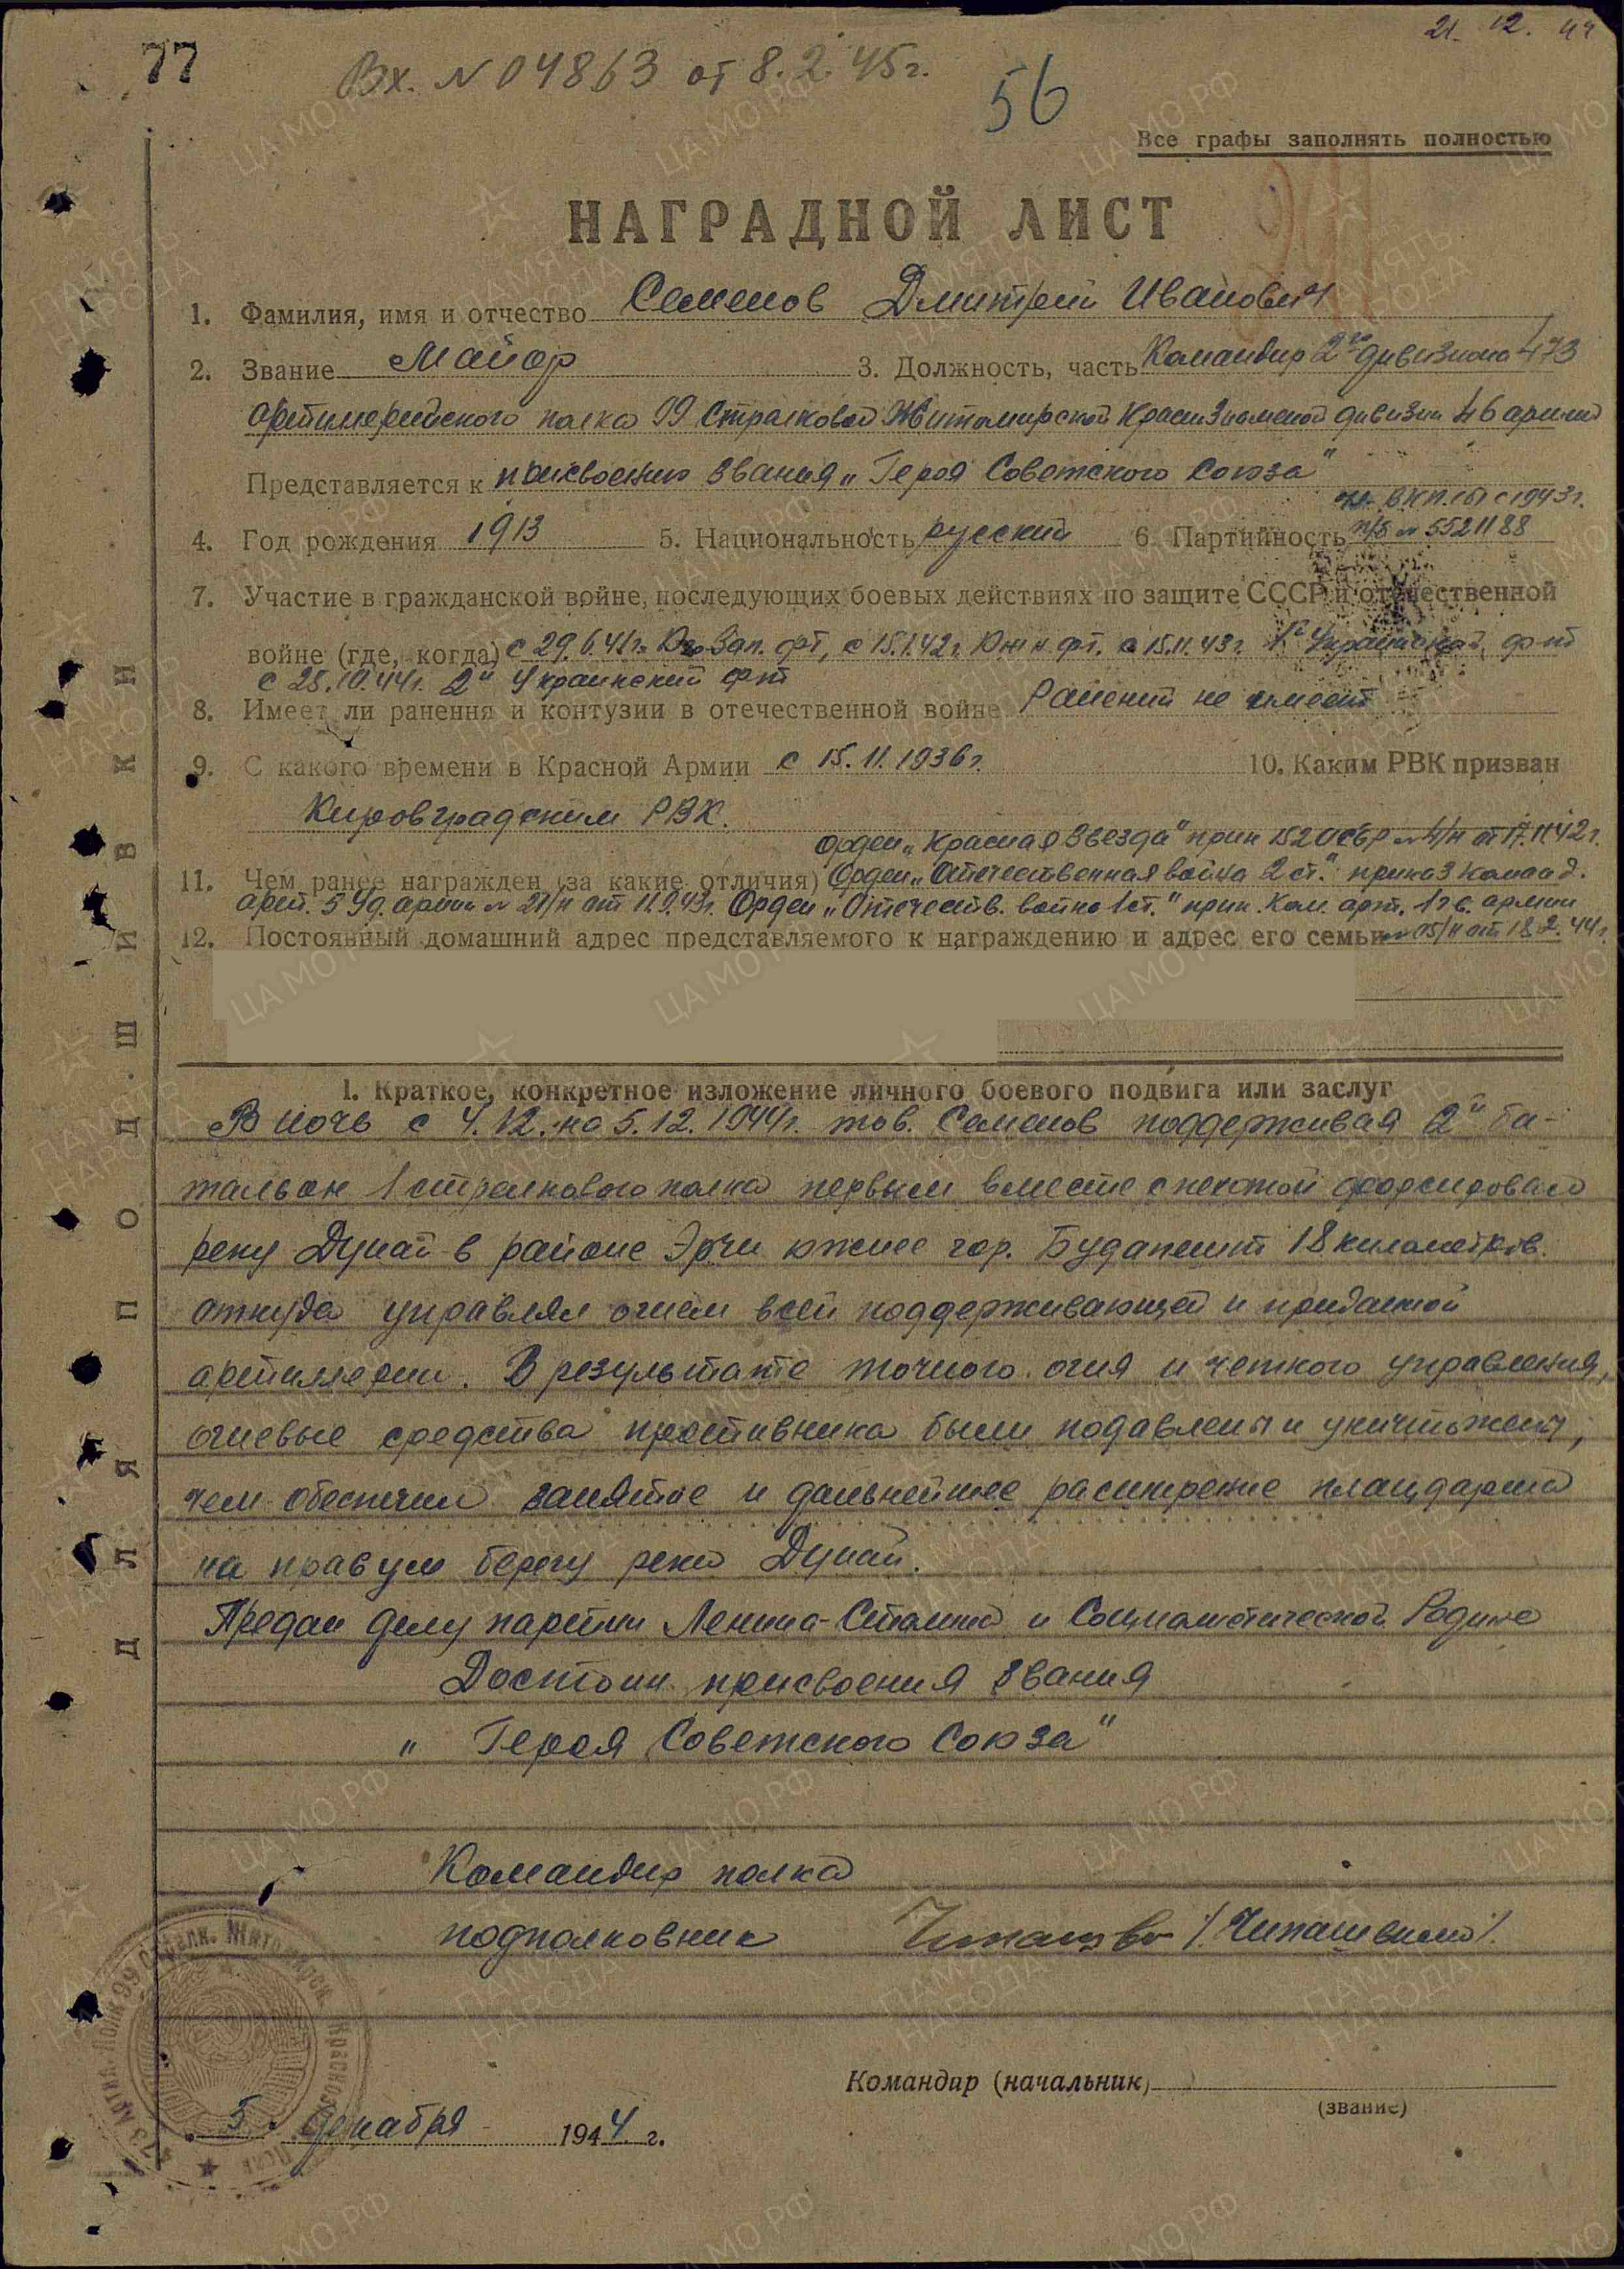 21. 12. 44
77
Вх. N 04863 от 8.2.45г.
56
Все графы заполнять полностью
НАГРАДНОЙ ЛИСТ
1. Фамилия, имя и отчество Семенов Дмитрий Иванович
2. Звание Майор 3. Должность, часть Командир 2го дивизиона 473
артиллерийского полка 99 Стрелковой Житомирской Краснознаменной дивизии 46 армии
Представляется к присвоению звания „Героя Советского Союза"
чл. ВКП(б) с 1943г.
4. Год рождения 1913 5. Национальность русский 6. Партийность п/б N 5521188
7. Участие в гражданской войне, последующих боевых действиях по защите СССР и отечественной
войне (где, когда) с 29.6.41г. Юго Зап. фт, с 15.1.42г. Южн. фт. с 15.11.43г. 1й Украинский фнт
с 28.10.44г. 2й Украинский фнт
8. Имеет ли ранения и контузии в отечественной войне Ранений не имеет
9. С какого времени в Красной Армии с 15.11.1936г. 10. Каким РВК призван
Кировградским РВК.
Орден „Красная Звезда" прик 152 ОСБР N 4/н от 17.11.42г.
11. Чем ранее награжден (за какие отличия) Орден „Отечественная война 2 ст." приказ команд.
арт. 5 Уд. армии N 21/н от 11.9.43г. Орден „Отечеств. война 1 ст." прик. Ком. арт. 1 гв. армии
12. Постоянный домашний адрес представляемого к награждению и адрес его семьи N 05/н от 18.2.44г.
I. Краткое, конкретное изложение личного боевого подвига или заслуг
В ночь с 4.12. на 5.12.1944г. тов. Семенов поддерживая 2й ба-
тальон 1 стрелкового полка первым вместе с пехотой форсировал
реку Дунай в районе Эрчи южнее гор. Будапешт 18 километров.
откуда управлял огнем всей поддерживающей и приданной
артиллерии. В результате точного огня и четкого управления,
огневые средства противника были подавлены и уничтожены,
чем обеспечил занятие и дальнейшее расширение плацдарма
на правум берегу реки Дунай.
Предан делу партии Ленина-Сталина и Социалистической Родине
Достоин присвоения звания
„ Героя Советского Союза"
Командир полка
подполковник /Чипашвили/.
Командир (начальник)
(звание)
5. декабря 1944 г.
ДЛЯ ПОДШИВКИ
473 Артил. Полк 99 Стрелк. Житомирск. Краснозн.
ЦА МО РФ
ПАМЯТЬ НАРОДА